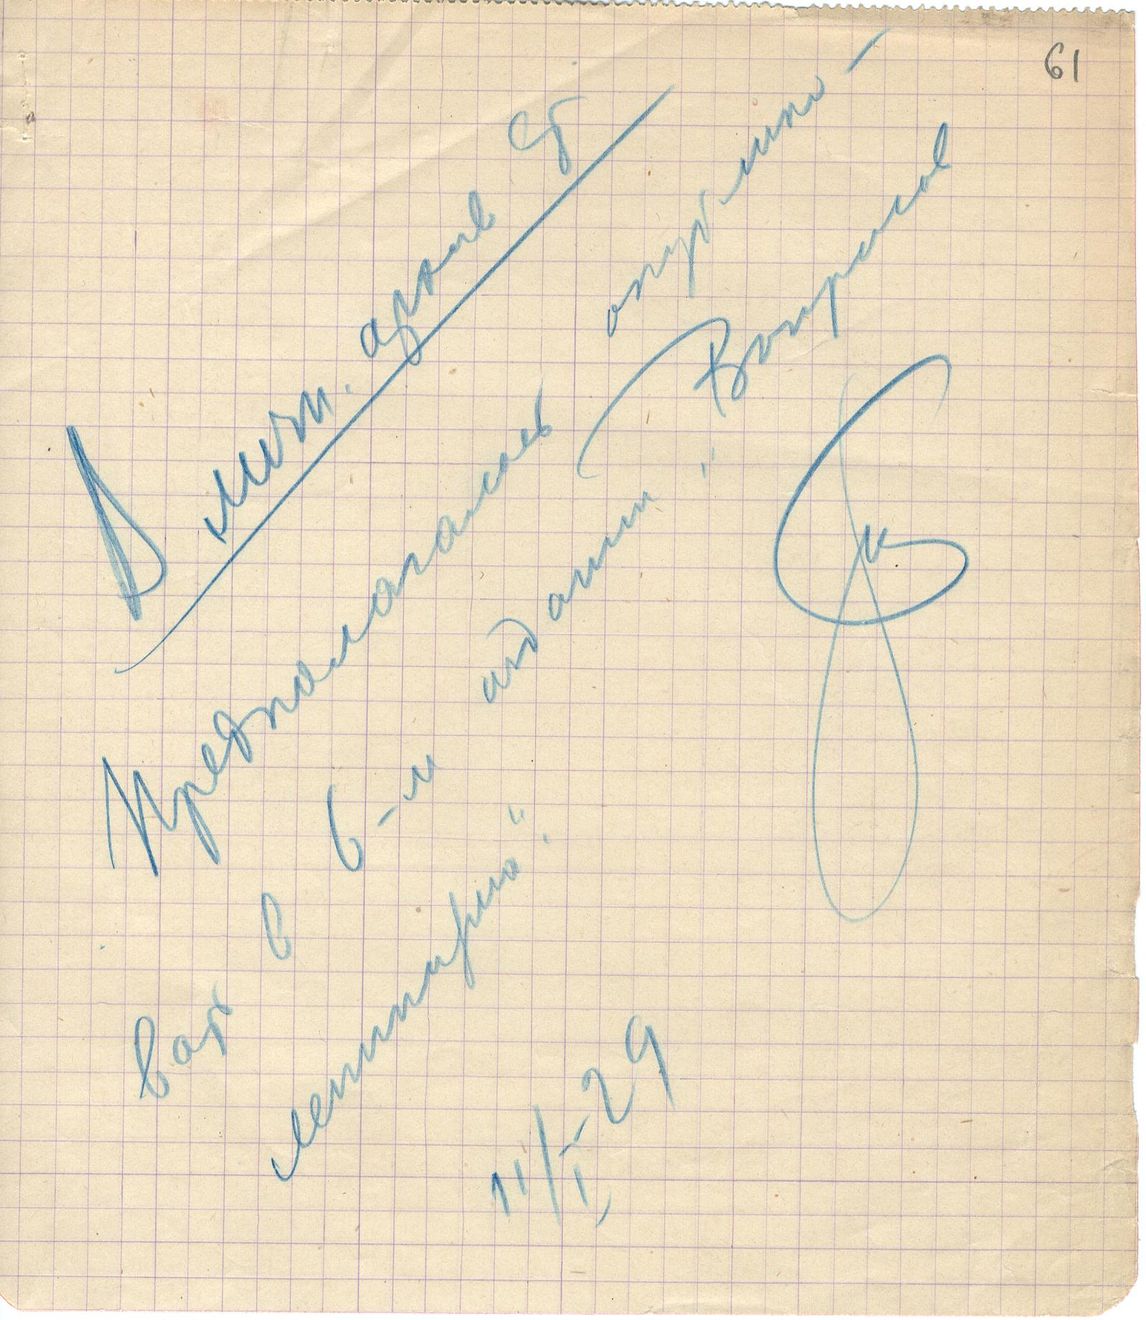 61
В личн. архив Ст
Предполагалось опублико-
вать в 6-м издании "Вопросов
ленинизма".
11/I-29